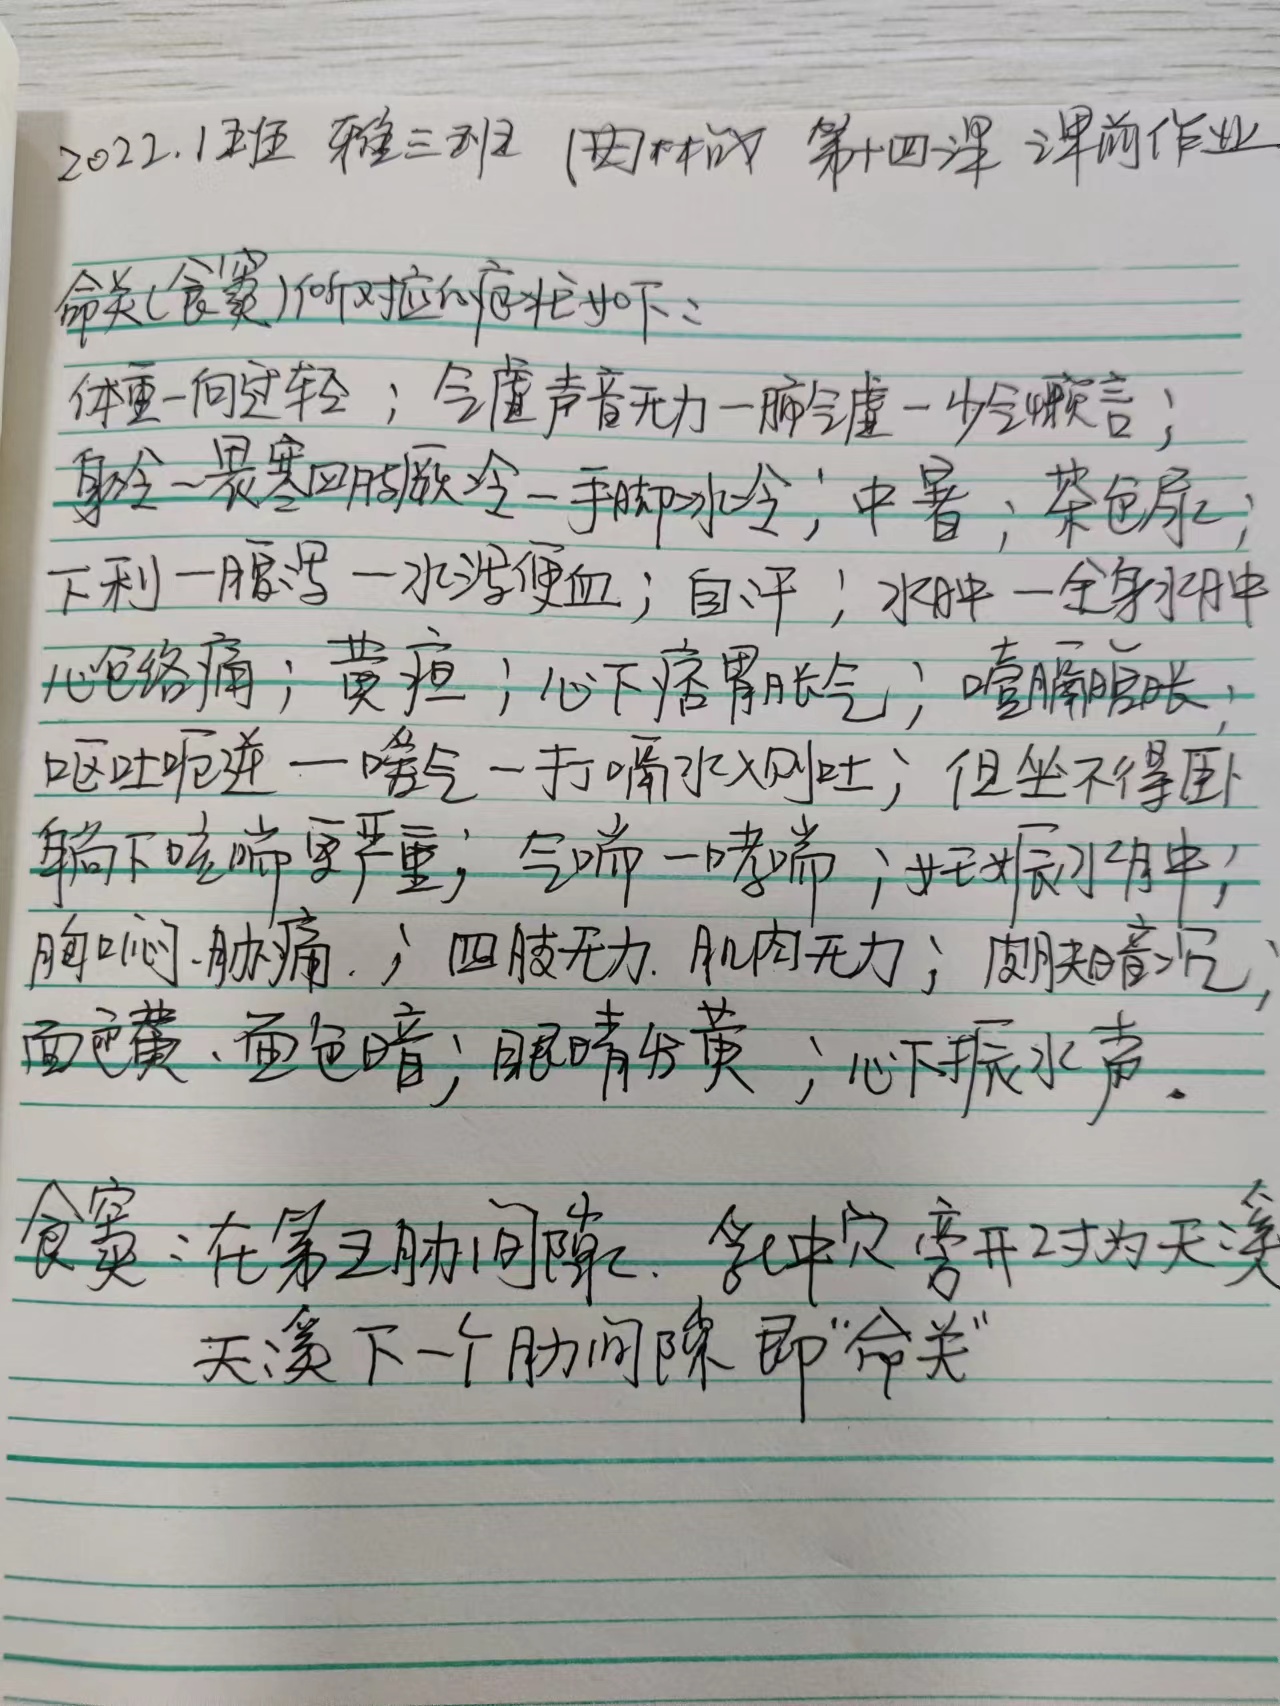 2022.1班 雅三班 第十四课 课前作业
命关(食窦)所对应的症状如下:
体重一向过轻；气虚声音无力一肺气虚一少气懒言；
身冷一畏寒四肢厥冷一手脚冰冷；中暑；茶色尿；
下利一腹泻一水泻便血；自汗；水肿一全身水肿
心包络痛；黄疸；心下痞胃胀气；噎膈腹胀；
呕吐呃逆一嗳气一打嗝水入则吐；但坐不得卧
躺下咳喘更严重；气喘一哮喘；妊娠水肿；
胸口闷.肋痛.；四肢无力.肌肉无力；皮肤暗沉；
面色黄、面色暗；眼睛分黄；心下振水声.
食窦:在第五肋间隙.乳中穴旁开2寸为天溪
天溪下一个肋间隙即"命关"